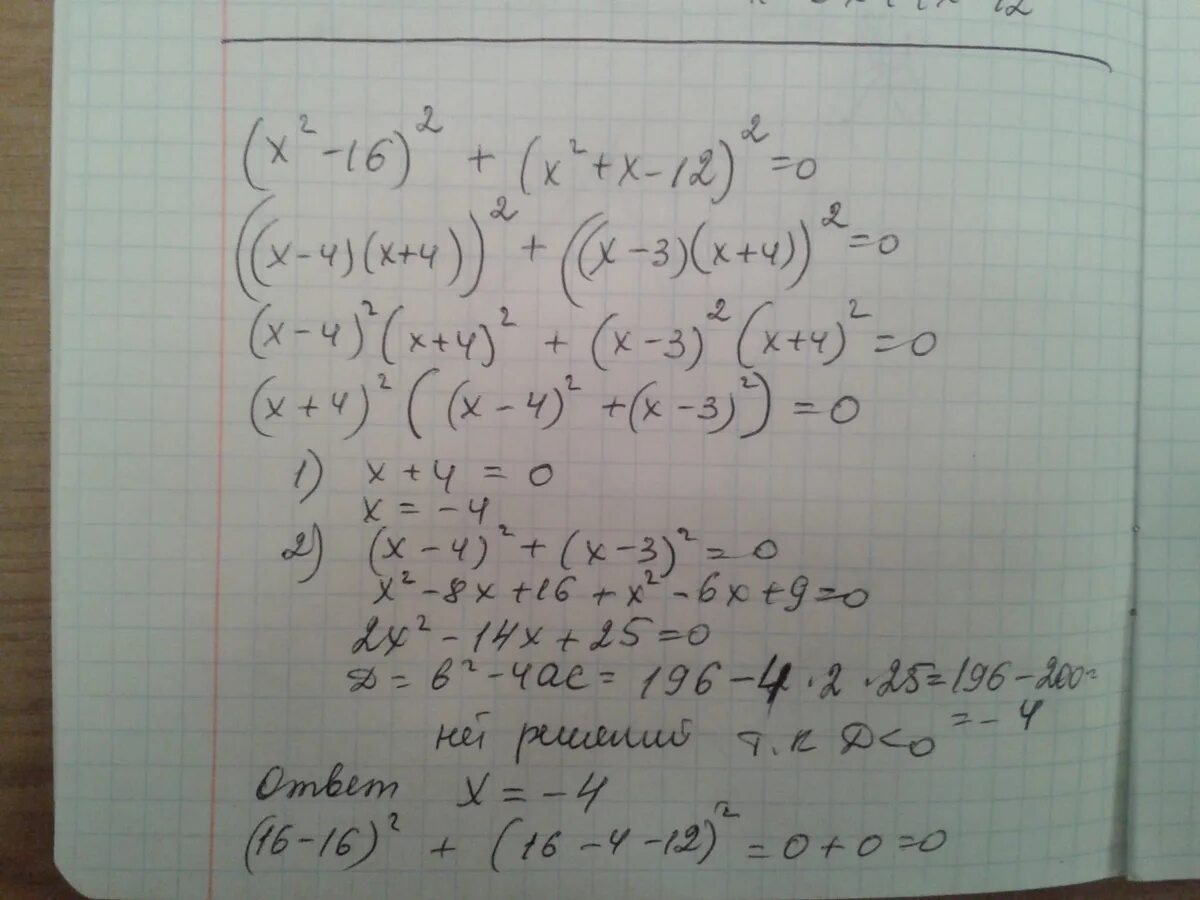 (x² - 16)² + (x² + x - 12)² = 0
((x - 4)(x + 4))² + ((x - 3)(x + 4))² = 0
(x - 4)² (x + 4)² + (x - 3)² (x + 4)² = 0
(x + 4)² ((x - 4)² + (x - 3)²) = 0
1) x + 4 = 0
x = -4
2) (x - 4)² + (x - 3)² = 0
x² - 8x + 16 + x² - 6x + 9 = 0
2x² - 14x + 25 = 0
Д = в² - 4ас = 196 - 4 · 2 · 25 = 196 - 200 =
= -4
нет решений т.к Д < 0
Ответ x = -4
(16 - 16)² + (16 - 4 - 12)² = 0 + 0 = 0